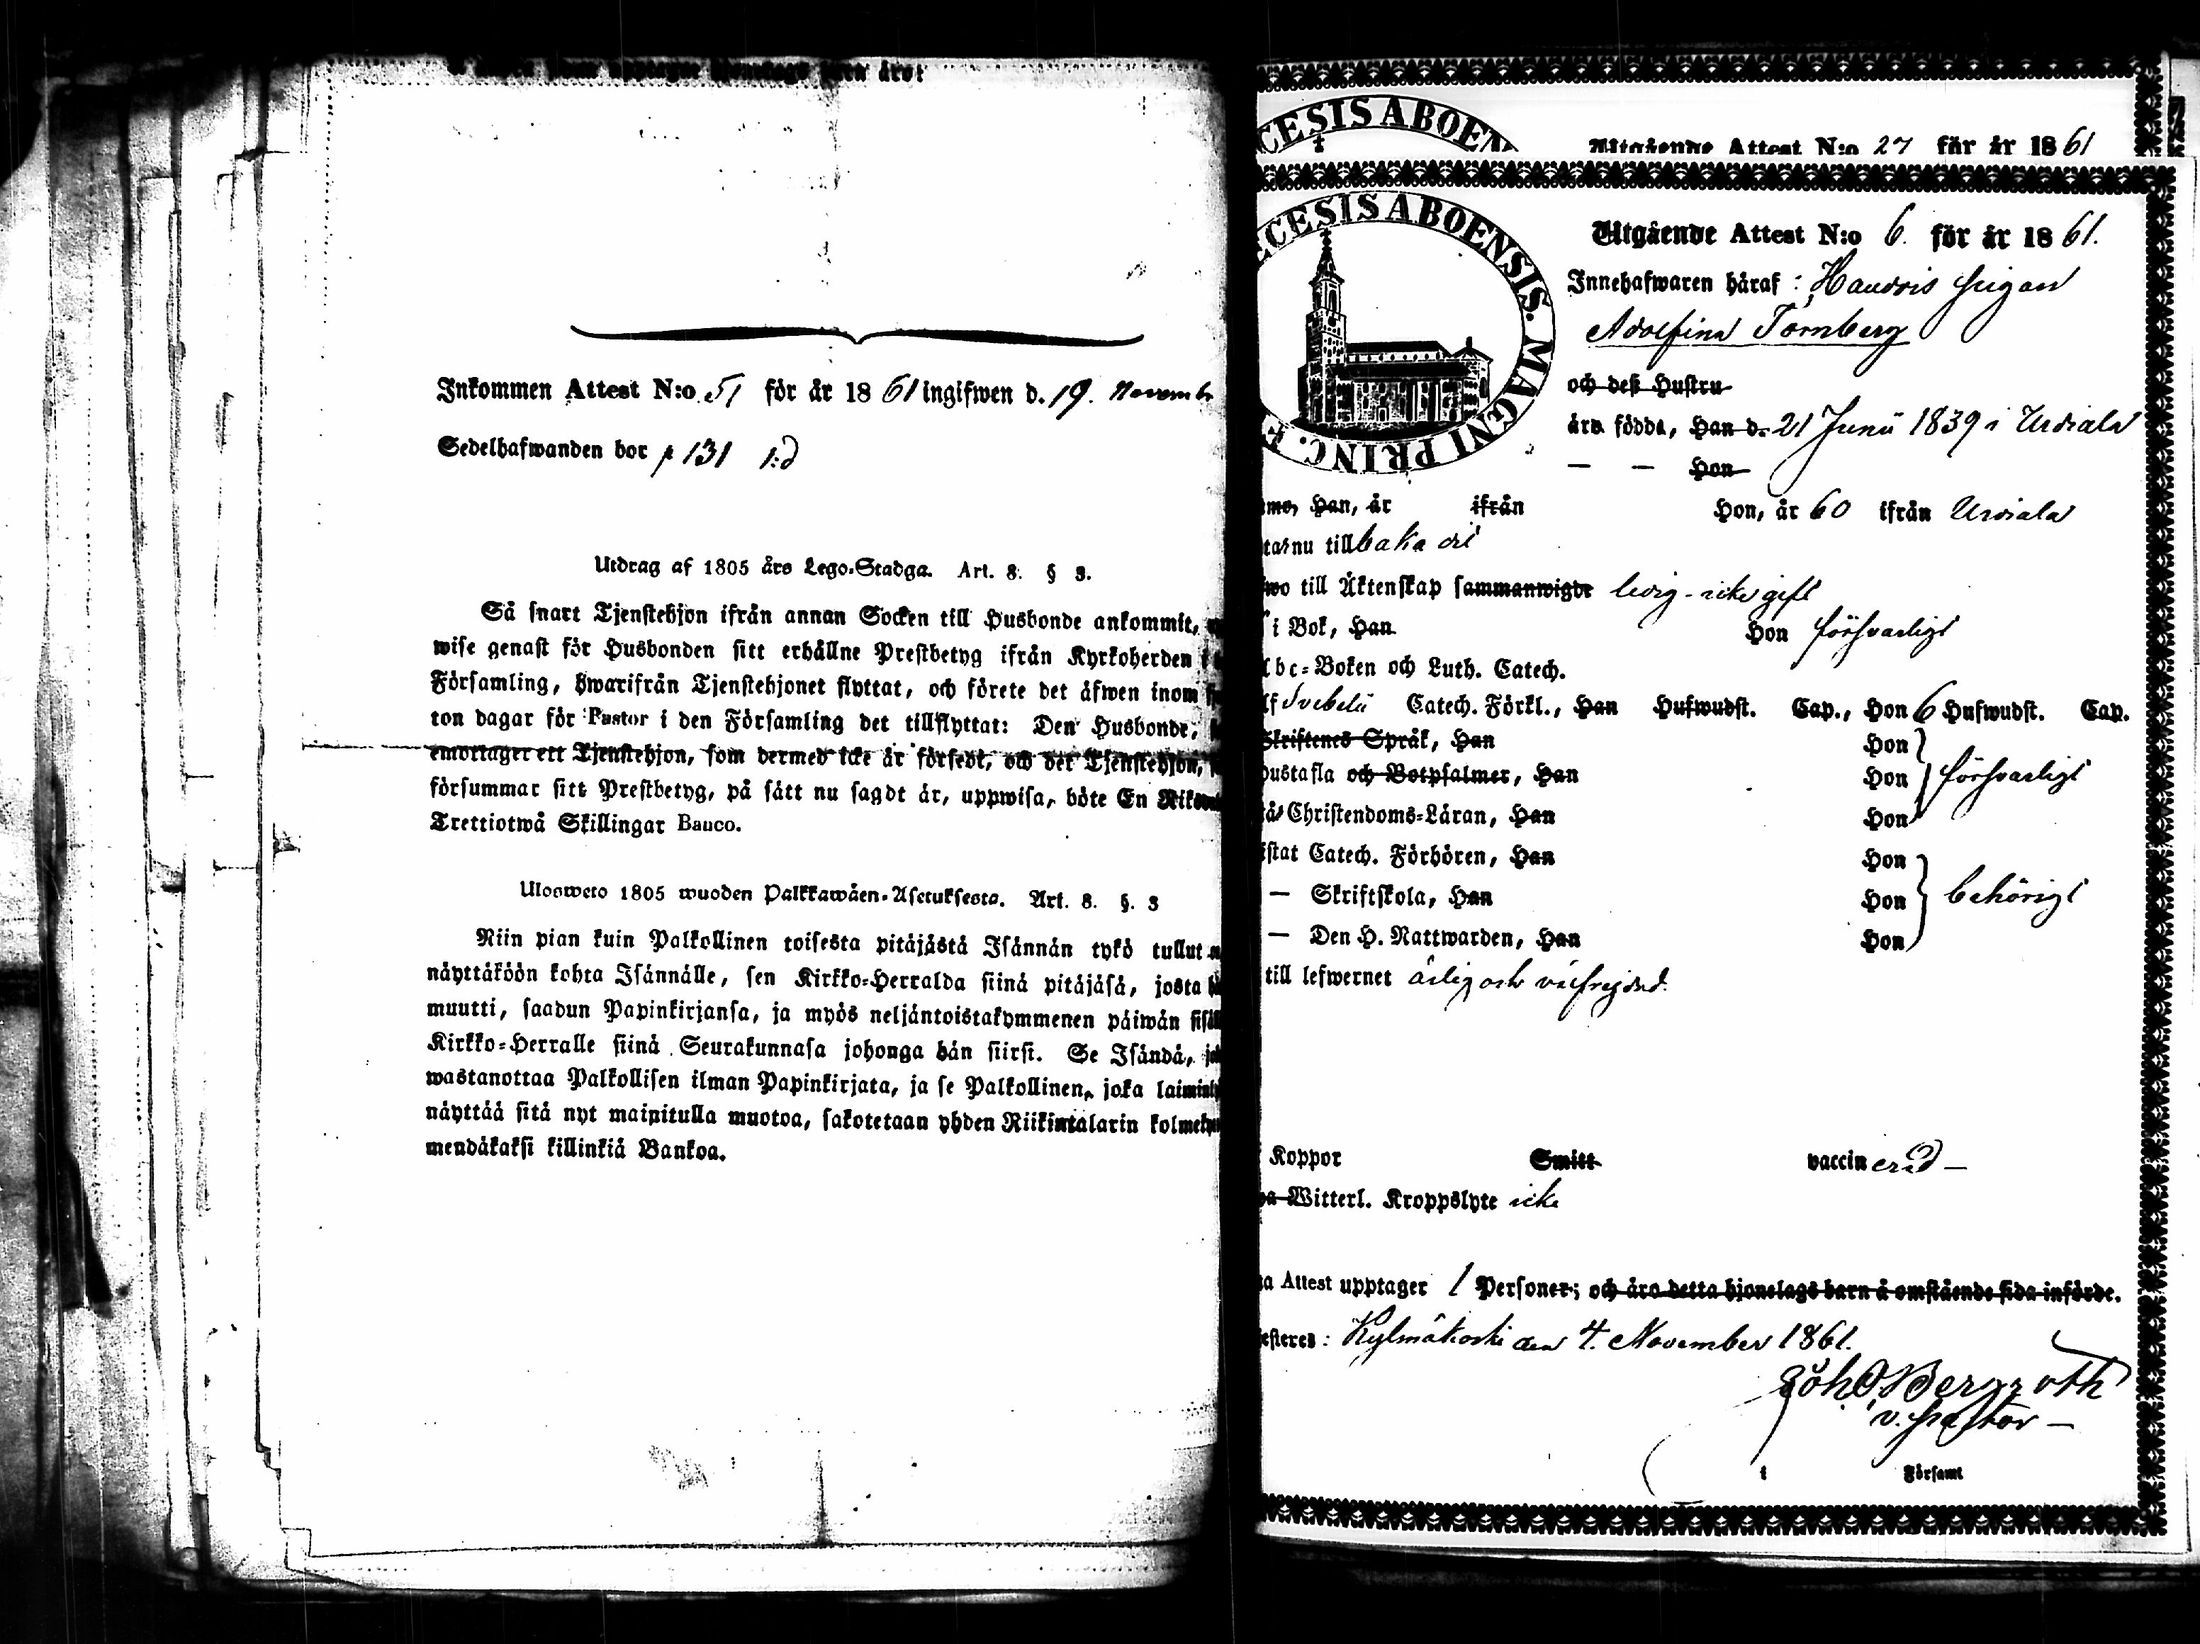 årot
Inkommen Attest N:o 51 för år 1861 ingifwen d. 19. Novemb
Sedelhafwanden bor p 131 1:d
Utdrag af 1805 års Lego-Stadga. Art. 8. § 3.
Så snart Tjenstehjon ifrån annan Socken till Husbonde ankommit,
wise genast för Husbonden sitt erhållne Prestbetyg ifrån Kyrkoherden i
Församling, hwarifrån Tjenstehjonet flyttat, och förete det äfwen inom
ton dagar för Pastor i den Församling det tillflyttat: Den Husbonde,
emottager ett Tjenstehjon, som dermed icke är försedt, och det Tjenstehjon,
försummar sitt Prestbetyg, på sätt nu sagdt är, uppwisa, böte En Riks
Trettiotwå Skillingar Banco.
Ulosweto 1805 wuoden Palkkawäen-Asetuksesta. Art. 8. §. 3
Niin pian kuin Palkollinen toisesta pitäjästä Isännän tykö tullut
näyttäköön kohta Isännälle, sen Kirkko-Herralda siinä pitäjäsä, josta
muutti, saadun Papinkirjansa, ja myös neljäntoistakymmenen päiwän sisäl
Kirkko-Herralle siinä Seurakunnasa johonga hän siirsi. Se Isändä,
wastanottaa Palkollisen ilman Papinkirjata, ja se Palkollinen, joka laimin
näyttää sitä nyt mainitulla muotoa, sakotetaan yhden Riikintalarin kolmeky
mendäkaksi killinkiä Bankoa.
CESIS ABOEN
Utgående Attest N:o 27 för år 1861
ECESIS ABOENSIS. MAGNI PRINC. F
Utgående Attest N:o 6. för år 1861.
Innehafwaren häraf: pigan
Adolfina Törnberg
och deß Hustru
äro födda, Han d. 21 Junii 1839 i Urdiala
— — Hon
Han, år ifrån Hon, år 60 ifrån Urdiala
nu tillbaka dit
till Äktenskap sammanwigde ledig - icke gift
i Bok, Han Hon försvarligt
bc-Boken och Luth. Catech.
Svebelii Catech. Förkl., Han Hufwudst. Cap., Hon 6 Hufwudst. Cap.
Skriftenes Språk, Han Hon
Hustafla och Botpsalmer, Han Hon försvarligt
Christendoms-Läran, Han Hon
stat Catech. Förhören, Han Hon
— Skriftskola, Han Hon behörigt
— Den H. Nattwarden, Han Hon
till lefwernet ärlig och väfrejdad.
Koppor Smitt vaccinerad —
Witterl. Kroppslyte icke
Attest upptager 1 Personer; och äro detta hjonelags barn å omstående sida införde.
esteres: Kylmäkoski den 4. November 1861.
Joh O Bergroth
v. pastor —
i Församl